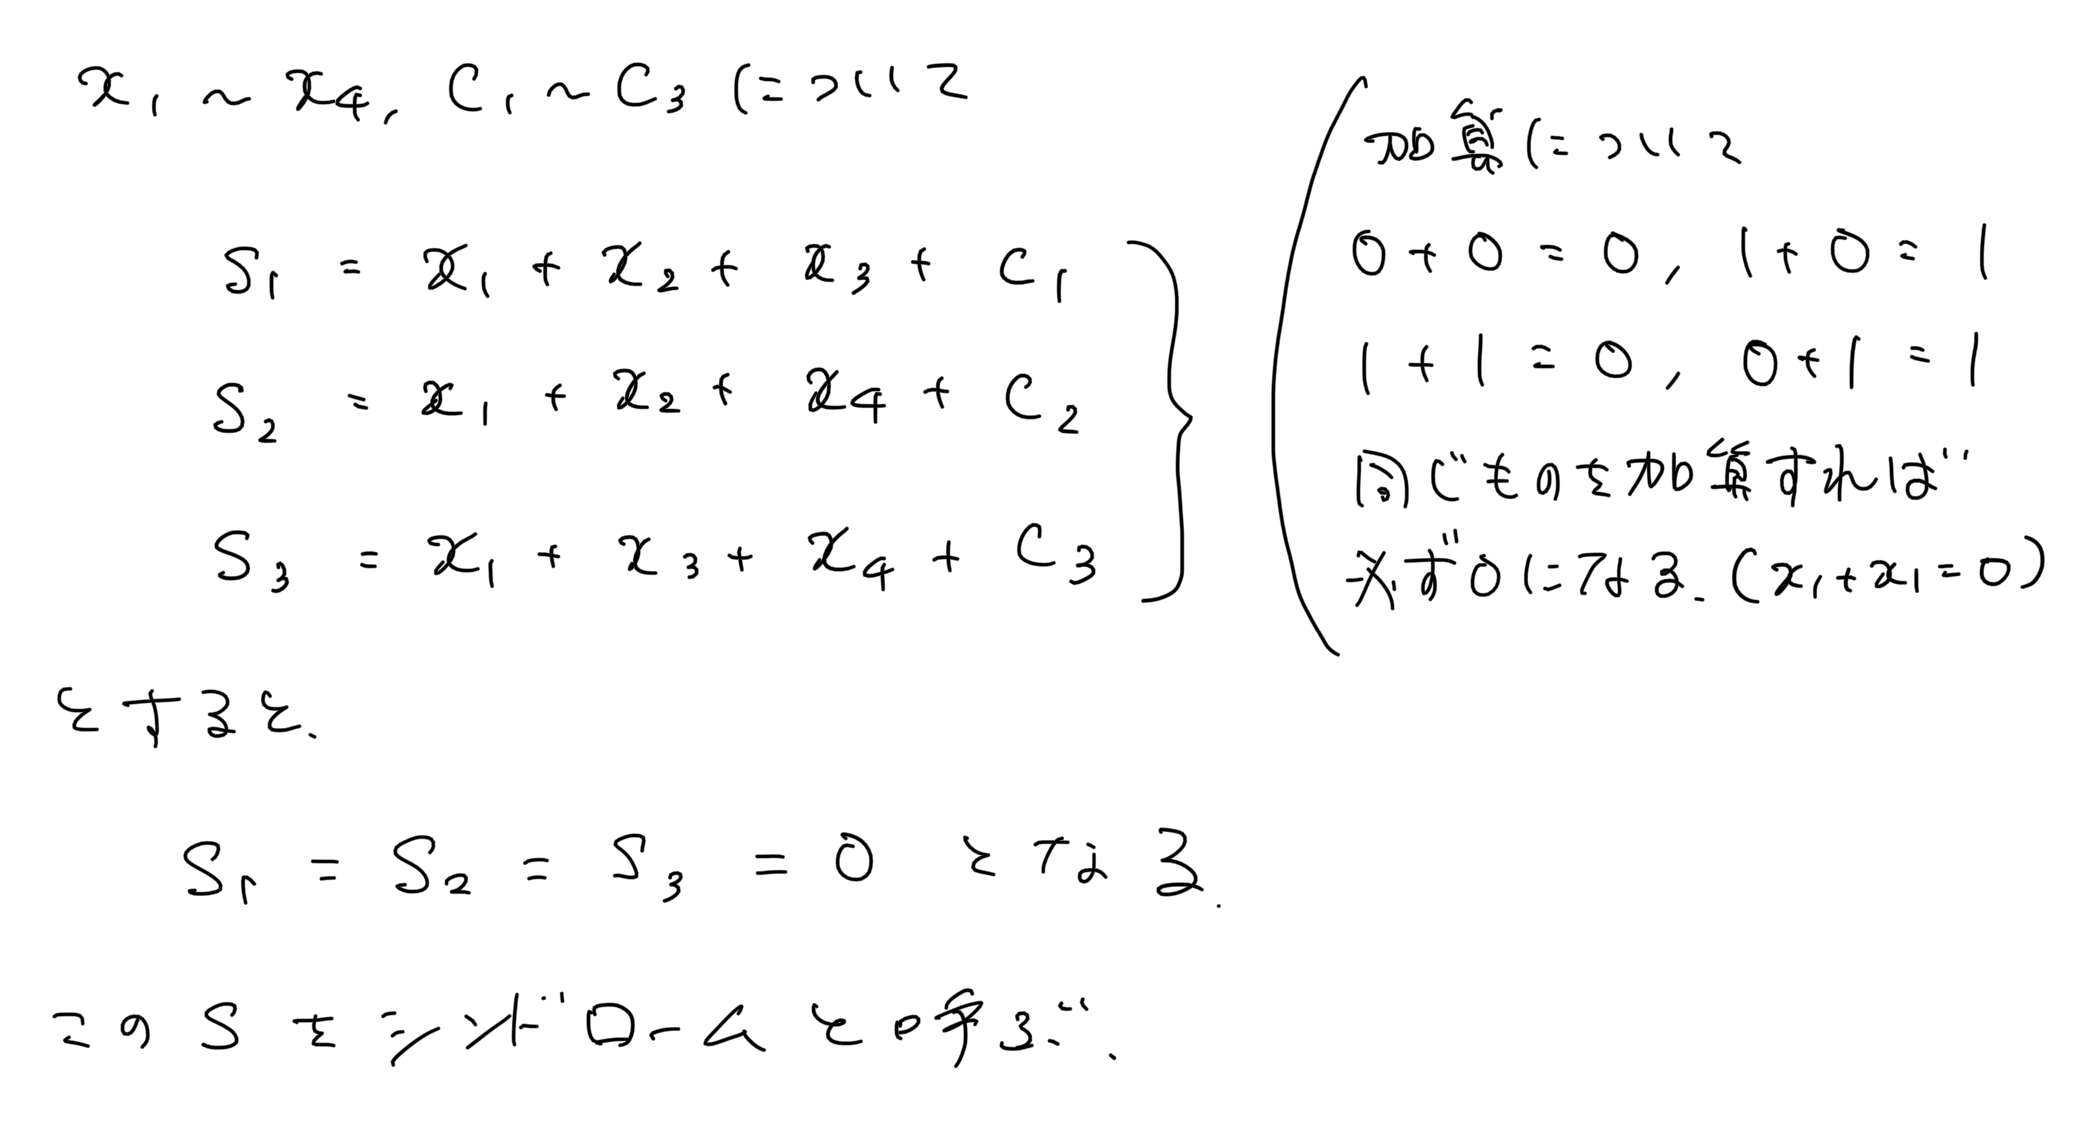 x₁ ~ x₄, C₁ ~ C₃ について
S₁ = x₁ + x₂ + x₃ + C₁
S₂ = x₁ + x₂ + x₄ + C₂
S₃ = x₁ + x₃ + x₄ + C₃
加算について
0 + 0 = 0, 1 + 0 = 1
1 + 1 = 0, 0 + 1 = 1
同じものを加算すれば
必ず0になる.(x₁+x₁=0)
とすると.
S₁ = S₂ = S₃ = 0 となる.
このSをシンドロームと呼ぶ.